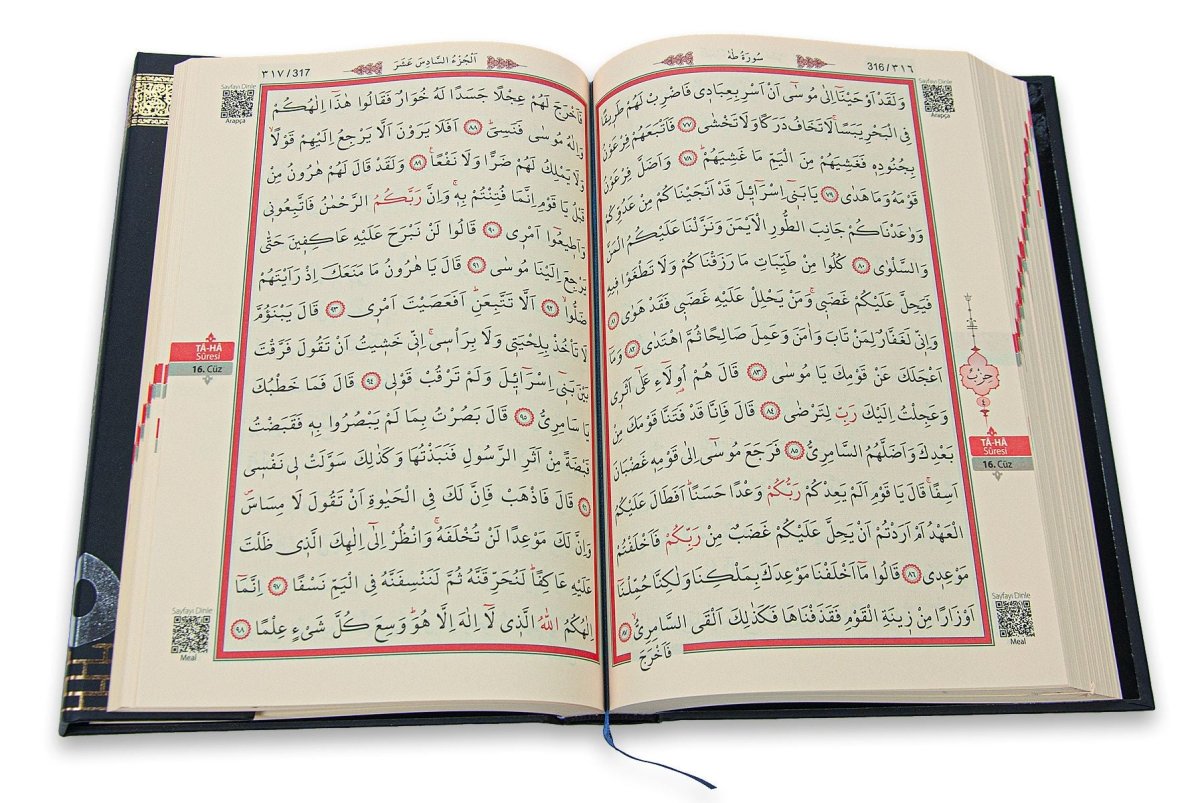 316/٣١٦
سُورَةُ طٰهٰ
Sayfayı Dinle
Arapça
وَلَقَدْ اَوْحَيْنَٓا اِلٰى مُوسٰٓى اَنْ اَسْرِ بِعِبَاد۪ى فَاضْرِبْ لَهُمْ طَر۪يقًا
فِى الْبَحْرِ يَبَسًاۙ لَا تَخَافُ دَرَكًا وَلَا تَخْشٰى ﴿٧٧﴾ فَاَتْبَعَهُمْ فِرْعَوْنُ
بِجُنُودِه۪ فَغَشِيَهُمْ مِنَ الْيَمِّ مَا غَشِيَهُمْۜ ﴿٧٨﴾ وَاَضَلَّ فِرْعَوْنُ
قَوْمَهُ وَمَا هَدٰى ﴿٧٩﴾ يَا بَن۪ٓى اِسْرَٓائ۪لَ قَدْ اَنْجَيْنَاكُمْ مِنْ عَدُوِّكُمْ
وَوٰعَدْنَاكُمْ جَانِبَ الطُّورِ الْاَيْمَنَ وَنَزَّلْنَا عَلَيْكُمُ الْمَنَّ
وَالسَّلْوٰى ﴿٨٠﴾ كُلُوا مِنْ طَيِّبَاتِ مَا رَزَقْنَاكُمْ وَلَا تَطْغَوْا ف۪يهِ
فَيَحِلَّ عَلَيْكُمْ غَضَب۪ىۚ وَمَنْ يَحْلِلْ عَلَيْهِ غَضَب۪ى فَقَدْ هَوٰى ﴿٨١﴾
وَاِنّ۪ى لَغَفَّارٌ لِمَنْ تَابَ وَاٰمَنَ وَعَمِلَ صَالِحًا ثُمَّ اهْتَدٰى ﴿٨٢﴾ وَمَٓا
اَعْجَلَكَ عَنْ قَوْمِكَ يَا مُوسٰى ﴿٨٣﴾ قَالَ هُمْ اُو۬لَٓاءِ عَلٰٓى اَثَر۪ى
وَعَجِلْتُ اِلَيْكَ رَبِّ لِتَرْضٰى ﴿٨٤﴾ قَالَ فَاِنَّا قَدْ فَتَنَّا قَوْمَكَ مِنْ
بَعْدِكَ وَاَضَلَّهُمُ السَّامِرِىُّ ﴿٨٥﴾ فَرَجَعَ مُوسٰٓى اِلٰى قَوْمِه۪ غَضْبَانَ
اَسِفًاۚ قَالَ يَا قَوْمِ اَلَمْ يَعِدْكُمْ رَبُّكُمْ وَعْدًا حَسَنًاۜ اَفَطَالَ عَلَيْكُمُ
الْعَهْدُ اَمْ اَرَدْتُمْ اَنْ يَحِلَّ عَلَيْكُمْ غَضَبٌ مِنْ رَبِّكُمْ فَاَخْلَفْتُمْ
مَوْعِد۪ى ﴿٨٦﴾ قَالُوا مَٓا اَخْلَفْنَا مَوْعِدَكَ بِمَلْكِنَا وَلٰكِنَّا حُمِّلْنَٓا
اَوْزَارًا مِنْ ز۪ينَةِ الْقَوْمِ فَقَذَفْنَاهَا فَكَذٰلِكَ اَلْقَى السَّامِرِىُّۙ ﴿٨٧﴾
فَاَخْرَجَ
حزب
٤
TÂ-HÂ
Sûresi
16. Cüz
Sayfayı Dinle
Meal
٣١٧/317
اَلْجُزْءُ السَّادِسَ عَشَرَ
Sayfayı Dinle
Arapça
فَاَخْرَجَ لَهُمْ عِجْلًا جَسَدًا لَهُ خُوَارٌ فَقَالُوا هٰذَٓا اِلٰهُكُمْ
وَاِلٰهُ مُوسٰى فَنَسِىَۜ ﴿٨٨﴾ اَفَلَا يَرَوْنَ اَلَّا يَرْجِعُ اِلَيْهِمْ قَوْلًاۙ
وَلَا يَمْلِكُ لَهُمْ ضَرًّا وَلَا نَفْعًا۟ ﴿٨٩﴾ وَلَقَدْ قَالَ لَهُمْ هٰرُونُ مِنْ
قَبْلُ يَا قَوْمِ اِنَّمَا فُتِنْتُمْ بِه۪ۚ وَاِنَّ رَبَّكُمُ الرَّحْمٰنُ فَاتَّبِعُون۪ى
وَاَط۪يعُٓوا اَمْر۪ى ﴿٩٠﴾ قَالُوا لَنْ نَبْرَحَ عَلَيْهِ عَاكِف۪ينَ حَتّٰى
يَرْجِعَ اِلَيْنَا مُوسٰى ﴿٩١﴾ قَالَ يَا هٰرُونُ مَا مَنَعَكَ اِذْ رَاَيْتَهُمْ
ضَلُّٓواۙ ﴿٩٢﴾ اَلَّا تَتَّبِعَنِۜ اَفَعَصَيْتَ اَمْر۪ى ﴿٩٣﴾ قَالَ يَبْنَؤُ۬مَّ
لَا تَأْخُذْ بِلِحْيَت۪ى وَلَا بِرَأْس۪ىۚ اِنّ۪ى خَش۪يتُ اَنْ تَقُولَ فَرَّقْتَ
بَيْنَ بَن۪ٓى اِسْرَٓائ۪لَ وَلَمْ تَرْقُبْ قَوْل۪ى ﴿٩٤﴾ قَالَ فَمَا خَطْبُكَ
يَا سَامِرِىُّ ﴿٩٥﴾ قَالَ بَصُرْتُ بِمَا لَمْ يَبْصُرُوا بِه۪ فَقَبَضْتُ
قَبْضَةً مِنْ اَثَرِ الرَّسُولِ فَنَبَذْتُهَا وَكَذٰلِكَ سَوَّلَتْ ل۪ى نَفْس۪ى
﴿٩٦﴾ قَالَ فَاذْهَبْ فَاِنَّ لَكَ فِى الْحَيٰوةِ اَنْ تَقُولَ لَا مِسَاسَۖ
وَاِنَّ لَكَ مَوْعِدًا لَنْ تُخْلَفَهُۚ وَانْظُرْ اِلٰٓى اِلٰهِكَ الَّذ۪ى ظَلْتَ
عَلَيْهِ عَاكِفًاۜ لَنُحَرِّقَنَّهُ ثُمَّ لَنَنْسِفَنَّهُ فِى الْيَمِّ نَسْفًا ﴿٩٧﴾ اِنَّمَٓا
اِلٰهُكُمُ اللّٰهُ الَّذ۪ى لَٓا اِلٰهَ اِلَّا هُوَۜ وَسِعَ كُلَّ شَىْءٍ عِلْمًا ﴿٩٨﴾
TÂ-HÂ
Sûresi
16. Cüz
Sayfayı Dinle
Meal